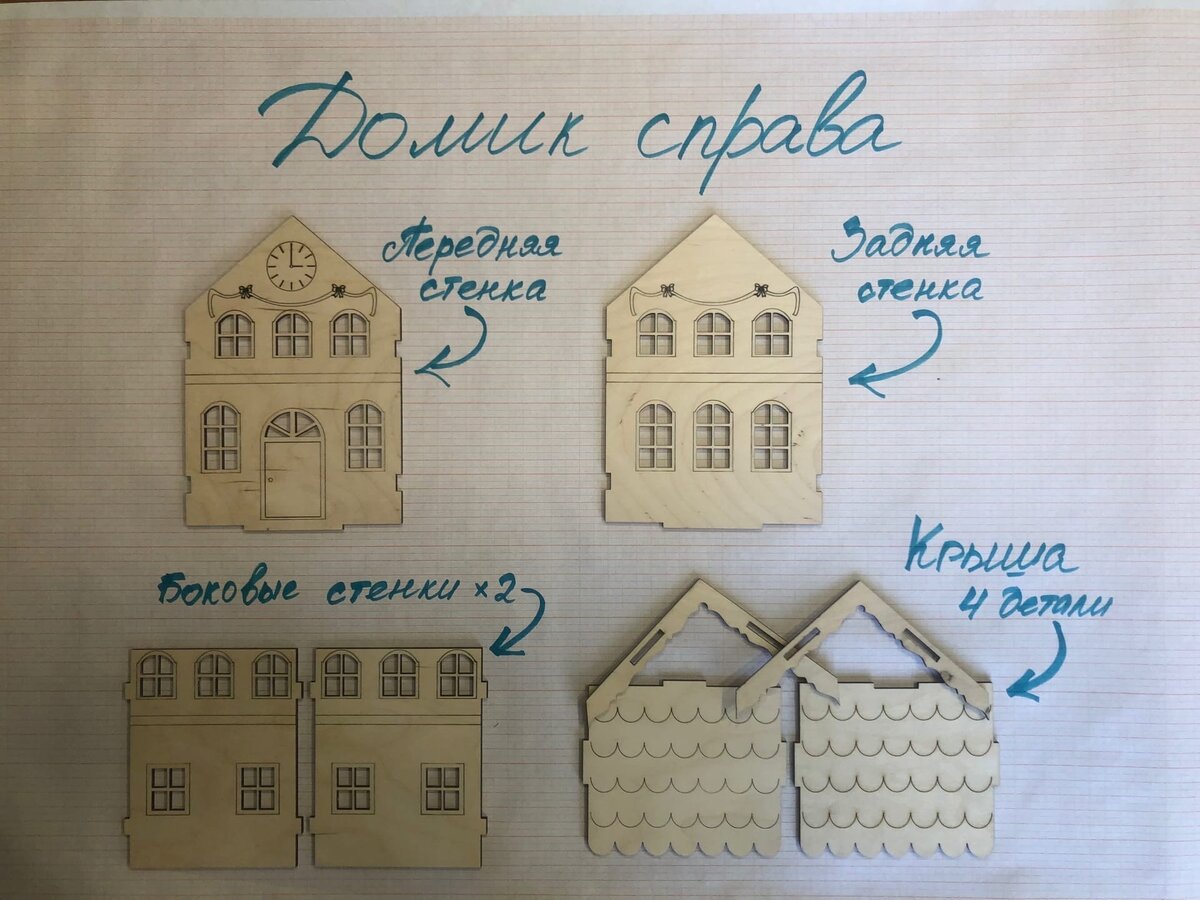 Домик справа
Передняя
стенка
Задняя
стенка
Боковые стенки ×2
Крыша
4 детали